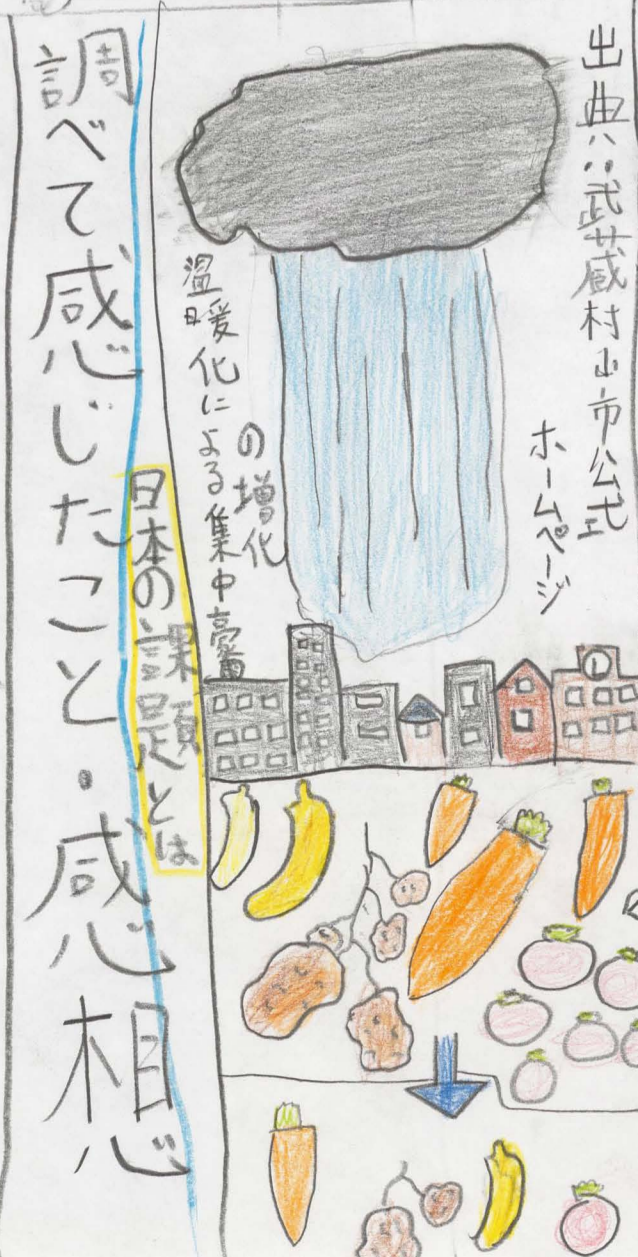 出典:武蔵村山市公式
ホームページ
の増化
温暖化による集中豪雷
日本の課題とは
調べて感じたこと・感想